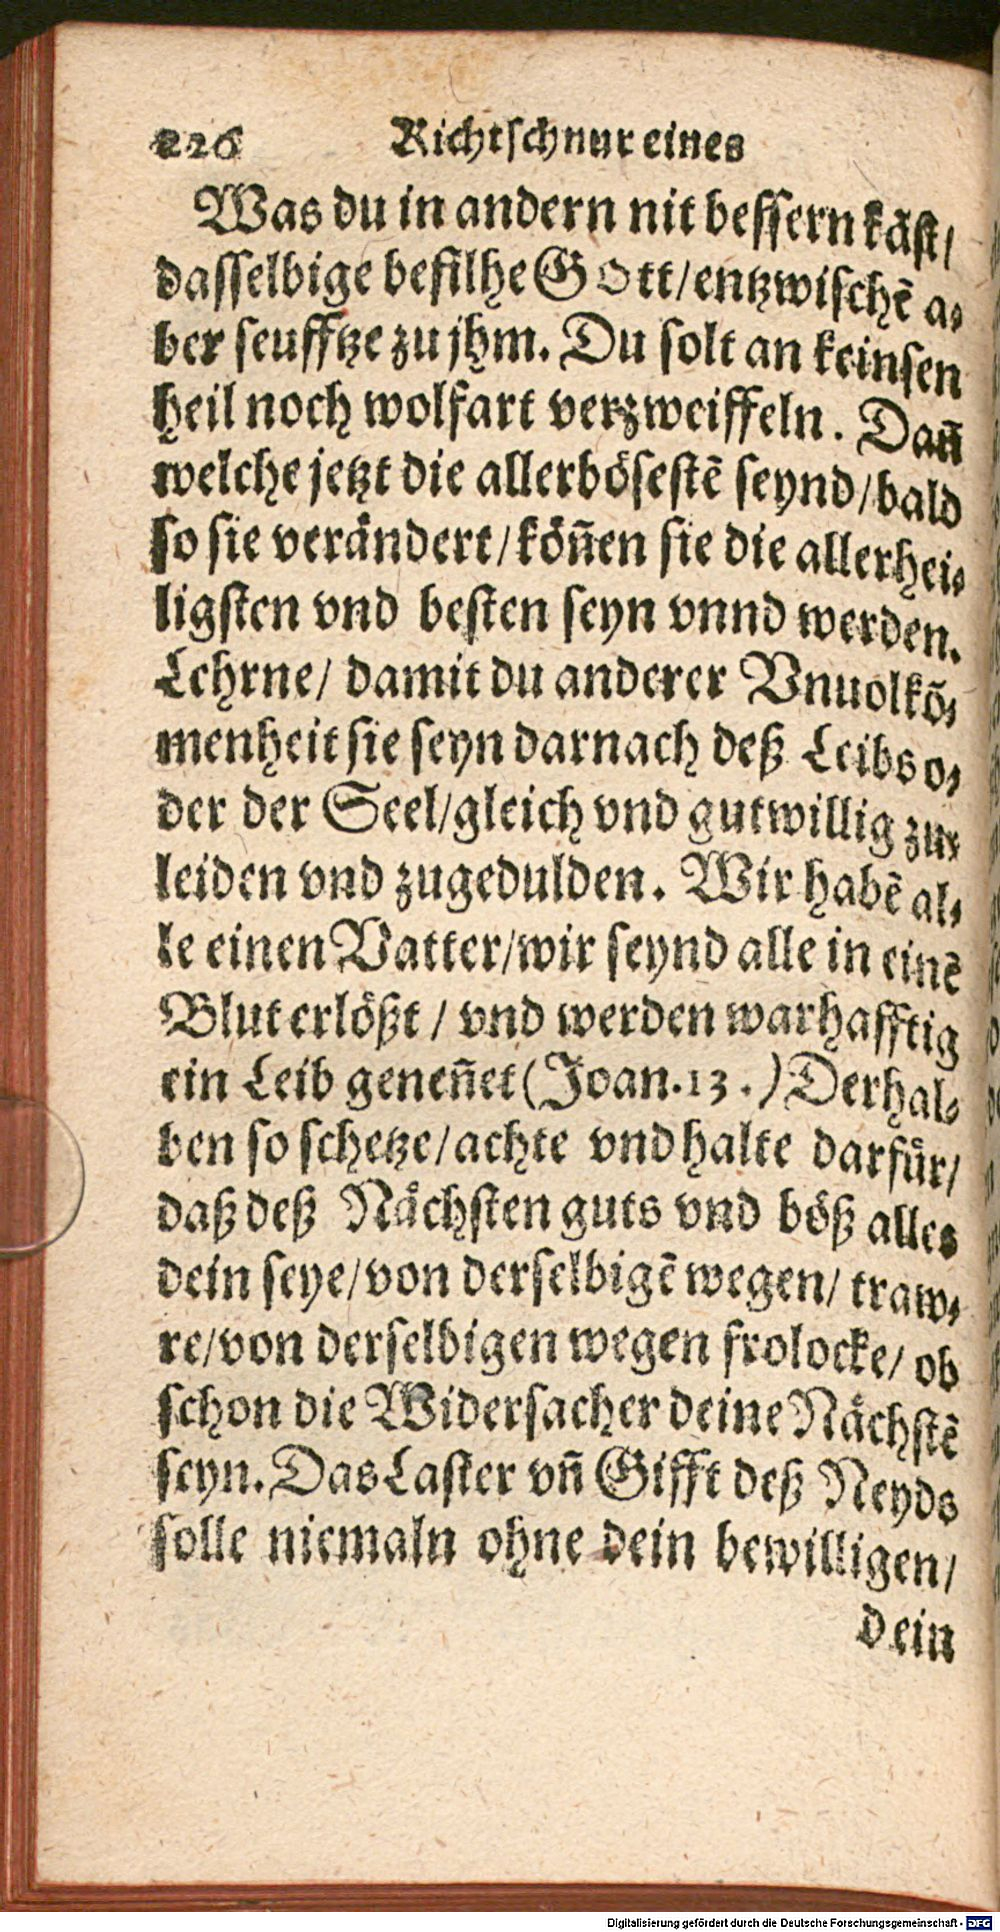 226 Richtschnur eines
Was du in andern nit bessern kāst/
dasselbige befilhe GOtt/entzwischē a-
ber seufftze zu jhm. Du solt an keinsen
heil noch wolfart verzweiffeln. Dañ
welche jetzt die allerbösestē seynd/bald
so sie verändert/köñen sie die allerhei-
ligsten vnd besten seyn vnnd werden.
Lehrne/ damit du anderer Vnuolkō-
menheit sie seyn darnach deß Leibs o-
der der Seel/gleich vnd gutwillig zur
leiden vnd zugedulden. Wir habē al-
le einen Vatter/wir seynd alle in einē
Blut erlößt / vnd werden warhafftig
ein Leib geneñet (Joan.13.) Derhal-
ben so schetze/achte vnd halte darfür/
daß deß Nächsten guts vnd böß alles
dein seye/von derselbigē wegen/ traw-
re/von derselbigen wegen frolocke/ ob
schon die Widersacher deine Nächstē
seyn. Das Laster vñ Gifft deß Neyds
solle niemaln ohne dein bewilligen/
dein
Digitalisierung gefördert durch die Deutsche Forschungsgemeinschaft - DFG